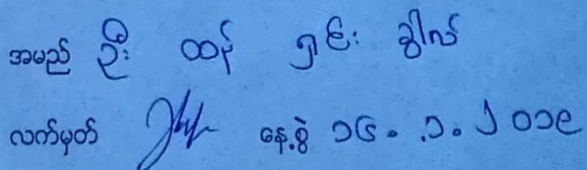 အမည် ဦး ထန် ရှင်း ခွါလ်
လက်မှတ် နေ့စွဲ ၁၆.၁.၂၀၁၉